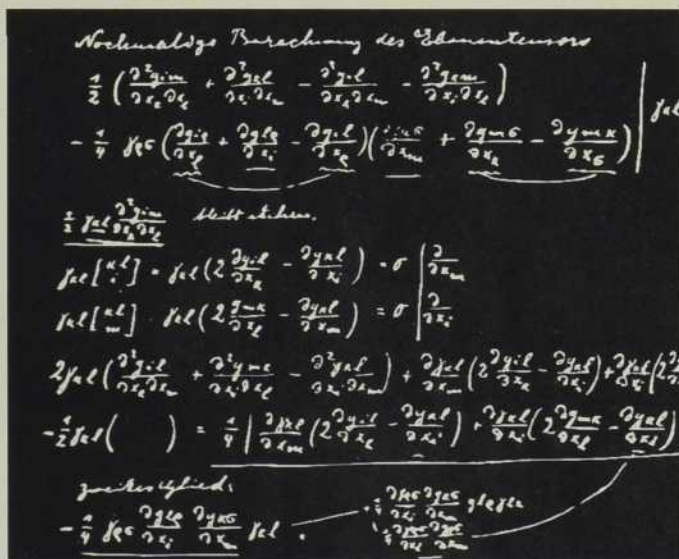 Nochmalige Berechnung des Ebenentensors
1/2 (∂²g_im/∂x_κ∂x_l + ∂²g_κl/∂x_i∂x_m − ∂²g_il/∂x_κ∂x_m − ∂²g_κm/∂x_i∂x_l)
− 1/4 γ_ρσ (∂g_iρ/∂x_l + ∂g_lρ/∂x_i − ∂g_il/∂x_ρ)( /∂x_m + ∂g_mσ/∂x_κ − ∂g_mκ/∂x_σ) | γ_κl
1/2 γ_κl ∂²g_im/∂x_κ∂x_l bleibt stehen.
γ_κl [κl i] = γ_κl (2 ∂g_il/∂x_κ − ∂g_κl/∂x_i) = 0 | ∂/∂x_m
γ_κl [κl m] γ_κl (2 g_mκ/∂x_l − ∂g_κl/∂x_m) = 0 | ∂/∂x_i
2γ_κl (∂²g_il/∂x_κ∂x_m + ∂²g_mκ/∂x_i∂x_l − ∂²g_κl/∂x_i∂x_m) + ∂γ_κl/∂x_m (2 ∂g_il/∂x_κ − ∂g_κl/∂x_i) + ∂γ_κl/∂x_i (2∂
− 1/2 γ_κl ( ) = 1/4 | ∂γ_κl/∂x_m (2 ∂g_il/∂x_κ − ∂g_κl/∂x_i) + ∂γ_κl/∂x_i (2 ∂g_mκ/∂x_l − ∂g_κl/∂x_i)
zweites Glied:
− 1/4 γ_ρσ ∂g_lρ/∂x_i ∂g_κσ/∂x_m γ_κl .